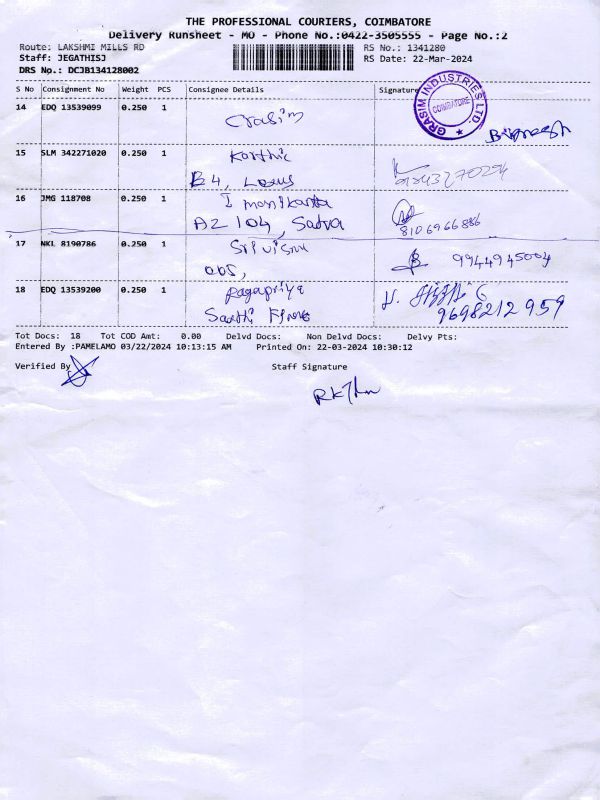 THE PROFESSIONAL COURIERS, COIMBATORE
Delivery Runsheet - MO - Phone No.:0422-3505555 - Page No.:2
Route: LAKSHMI MILLS RD
RS No.: 1341280
Staff: JEGATHISJ
RS Date: 22-Mar-2024
DRS No.: DCJB134128002
S No Consignment No Weight PCS Consignee Details Signature
14 EDQ 13539099 0.250 1
Grasim
GRASIM INDUSTRIES LTD.
COIMBATORE
15 SLM 342271020 0.250 1 Karthic
B4, Lotus
16 JMG 118708 0.250 1 I manikanta
A2 104, Sadva
8106966886
17 NKL 8190786 0.250 1 Sri vishnu
9944945004
18 EDQ 13539200 0.250 1 Ragapriya
9698212959
Tot Docs: 18 Tot COD Amt: 0.00 Delvd Docs: Non Delvd Docs: Delvy Pts:
Entered By :PAMELAMO 03/22/2024 10:13:15 AM Printed On: 22-03-2024 10:30:12
Verified By Staff Signature